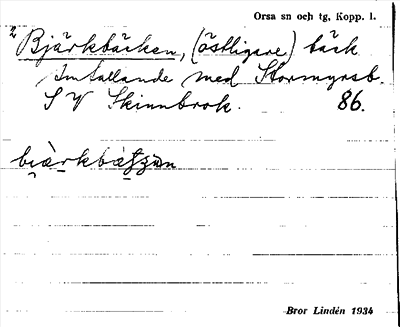 Orsa sn och tg, Kopp. l.
2 Bjärkbäcken, (östligare) bäck
Infallande med Stormyrsb.
SV Skinnbrok. 86.
Bror Lindén 1934